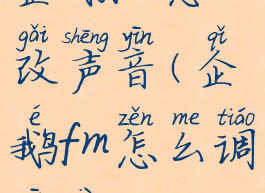 gǎi shēng yīn qǐ
改声音(企
é zěn me tiáo
鹅fm怎么调